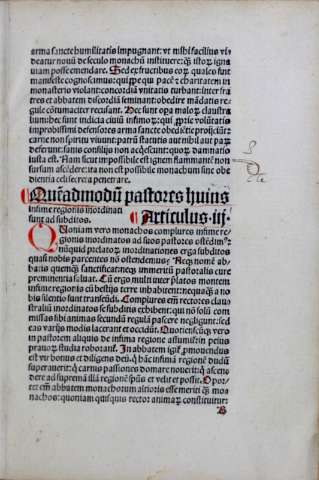 arma sancte humilitatis impugnant: vt mihi facilius vi-
deatur nouũ de seculo monachũ instituere: q̃ istoꝝ igna
uiam posse emendare. Sed ex fructibus eoꝝ quales sunt
manifeste cognoscimus: qui pacẽ ⁊ charitatem in
monasterio violant: concordiã vnitatis turbant: inter fra
tres et abbatem discordiã seminant: obedire mãdatis re-
gule cõtumaciter recusant. De sunt opa maloꝝ claustra
improbissimi defensores arma sancte obediẽtie proijciũt:
carne non spiritu viuunt: patrũ statutis aut nihil aut paꝝ
deferunt: sanis consilijs non acq̃escunt: quoꝝ damnatio
iusta est. Nam sicut impossibile est ignem flammantẽ non
sursum ascẽdere: ita non est possibile monachum sine obe
dientia celi secreta penetrare.
Quẽadmodũ pastores huius
infime regionis inordinati
sunt ad subditos. Articulus. iij.
Quoniam vero monachos complures infime re-
gionis inordinatos ad suos pastores ostẽdim⁹:
nũquid prelatoꝝ inordinationes erga subditos
quasi nobis parcentes nõ ostendemus? Neq̃ nomẽ ab-
batis quemq̃ sanctificat: neq̃ immeritũ pastoralis cure
preeminentia saluat. Cũ ergo multi
infime regionis cũ bestijs terre inhabitent: neq̃q̃ a no
bis silentio sunt transeũdi. Complures em̃ rectores clau
straliũ inordinatos se subditis exhibent: qui nõ solũ com
missas sibi animas secundũ regulã pascere negligunt: sed
eas varijs modis lacerant et occidũt. Quotienscũq̃ vero
in pastorem aliquis de infima regione assumit̃
in peius
prauoꝝ studia roborant̃. In abbatem igit̃ ꝓmouendus
est vir bonus et diligens dei: q̃ hãc infimã regionẽ dudũ
superauerit: q̃ carnis passiones domare nouerit: q̃ ascen
dere ad supremã illã regionẽ sp̃us et velit et possit. Opor-
tet em̃ abbatem monachorum altioris esse meriti q̃ mo
nachos: quoniam quisquis rector animaꝝ constituitur: